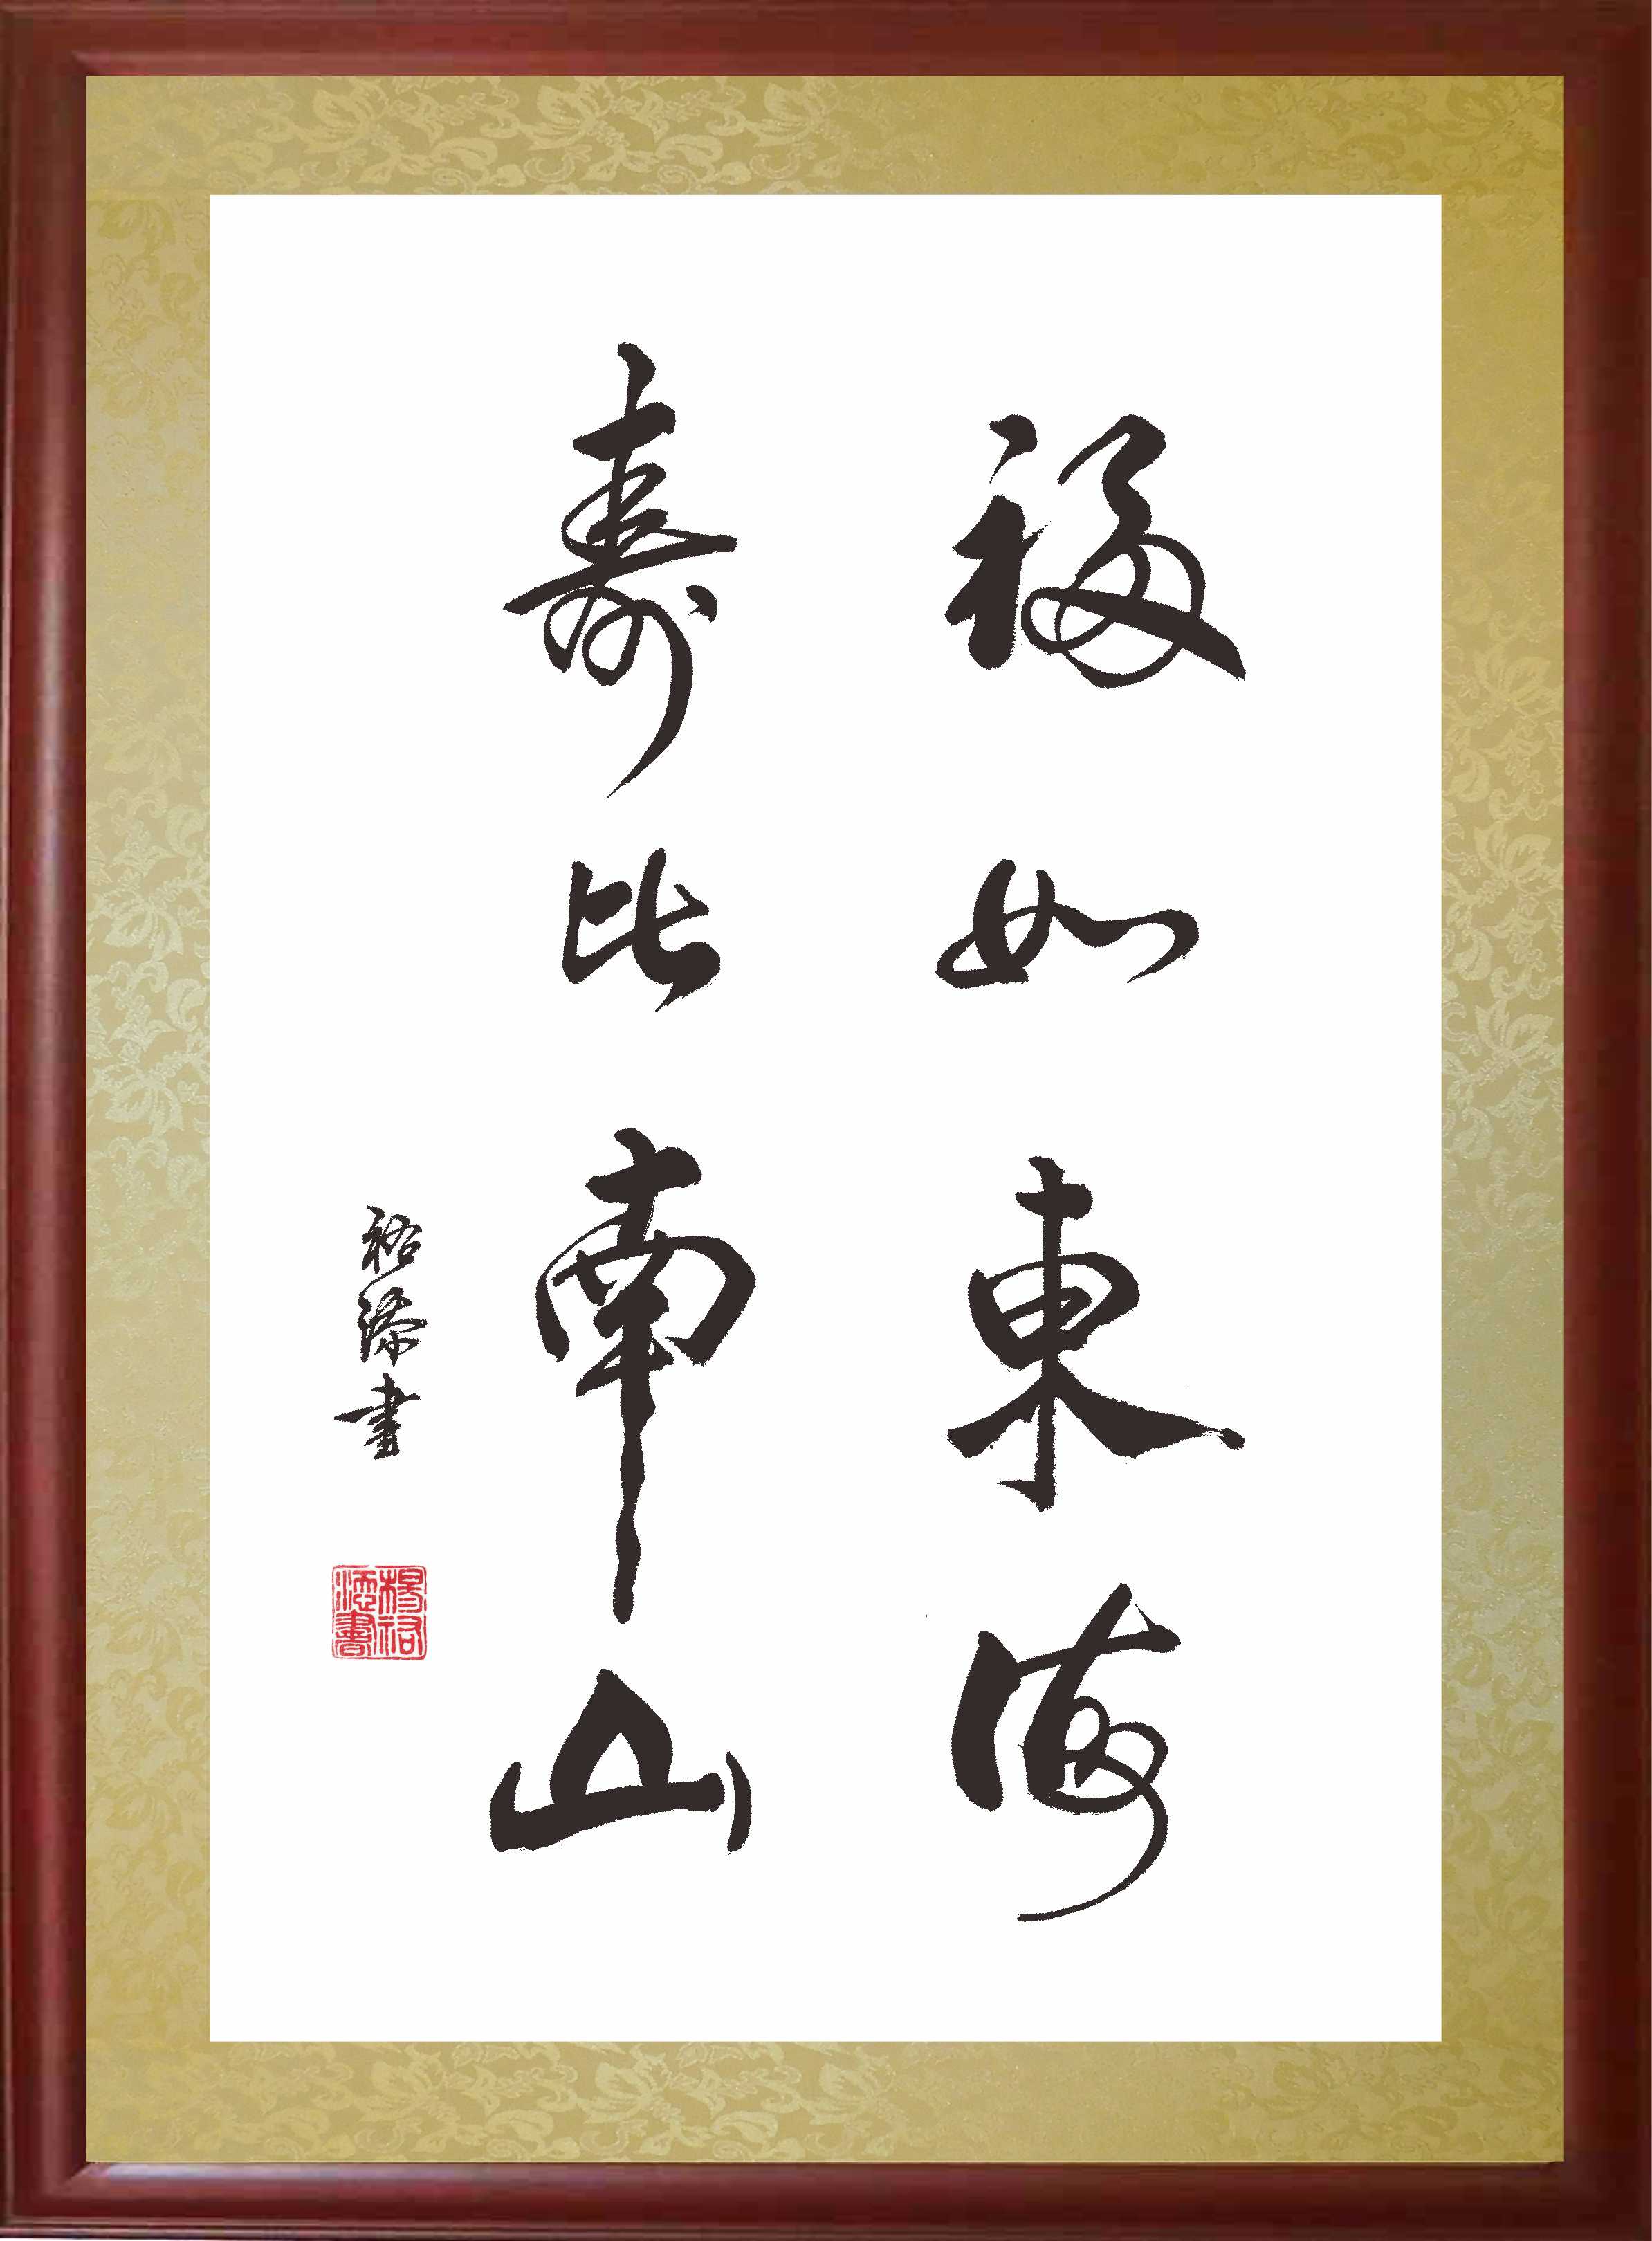 福如東海
壽比南山
裕添書
楊裕添書